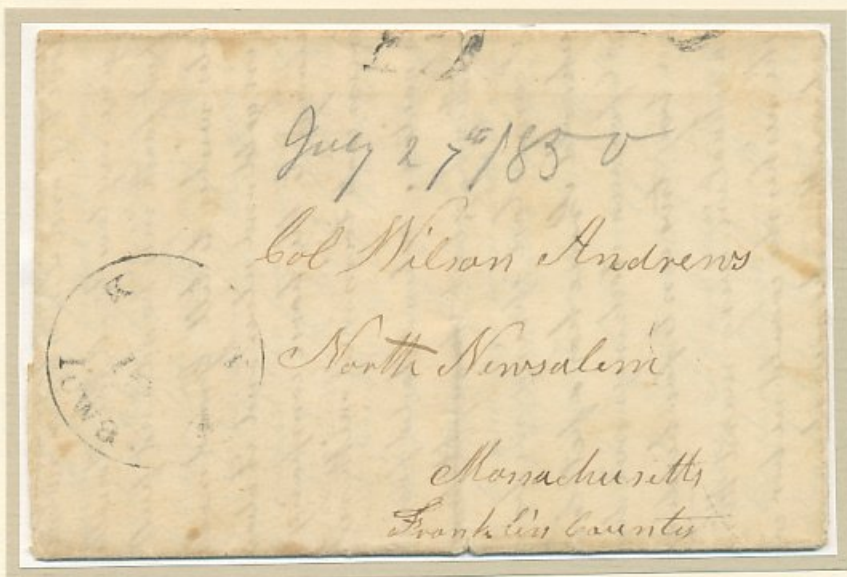 July 27th/1850
Col Wilson Andrews
North Newsalem
Massachusetts
Franklin County
IOWA